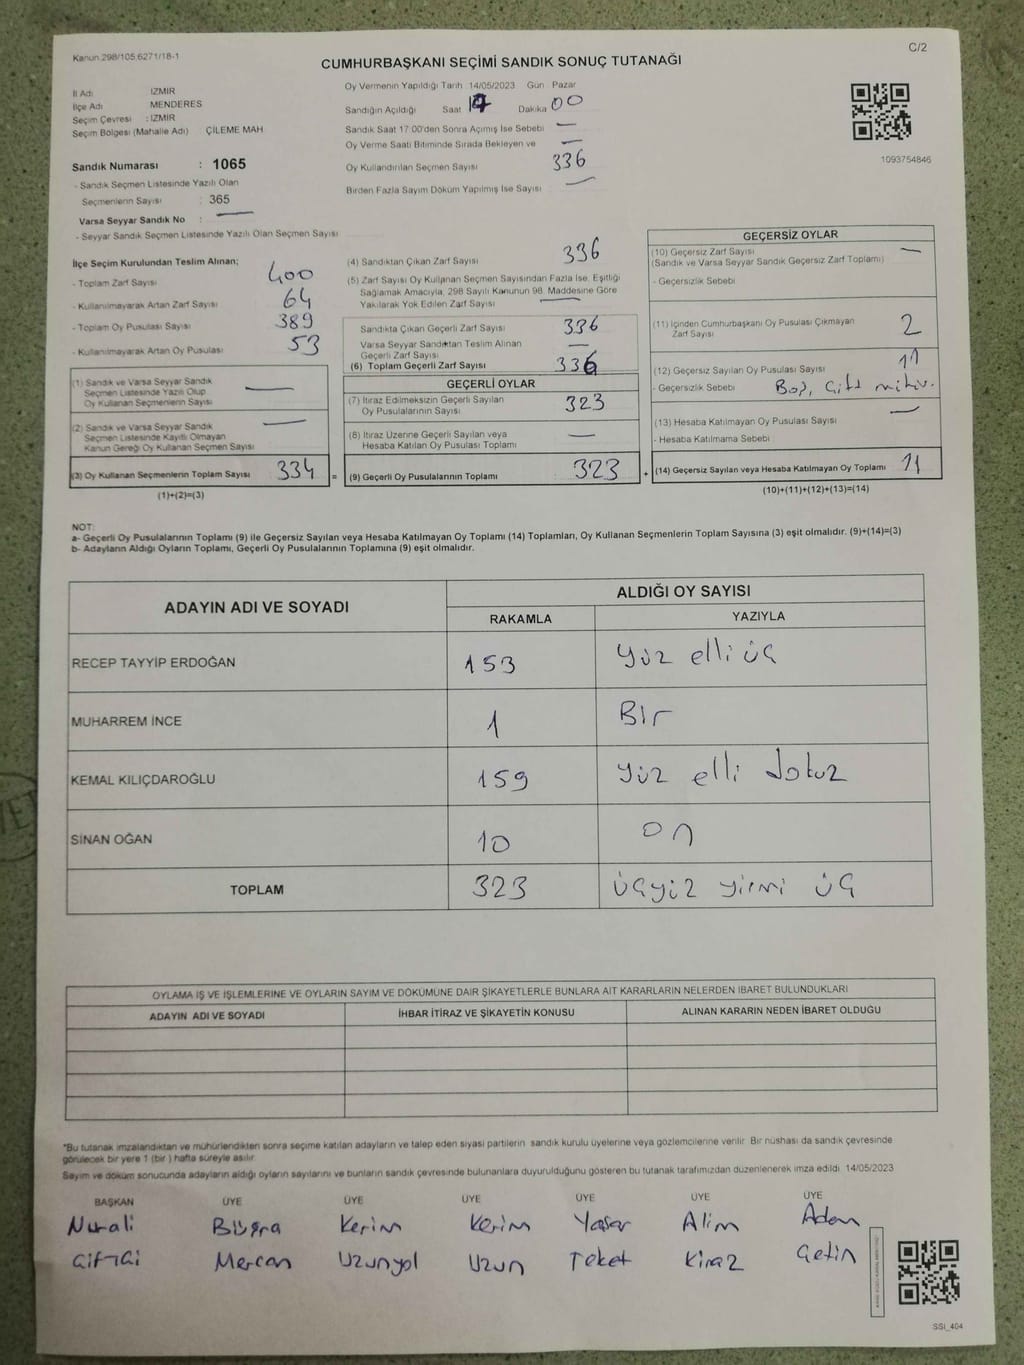 Kanun 298/105,6271/18-1
C/2
CUMHURBAŞKANI SEÇİMİ SANDIK SONUÇ TUTANAĞI
İl Adı İZMİR
İlçe Adı MENDERES
Seçim Çevresi : İZMİR
Seçim Bölgesi (Mahalle Adı) ÇİLEME MAH
Sandık Numarası : 1065
- Sandık Seçmen Listesinde Yazılı Olan
Seçmenlerin Sayısı : 365
Varsa Seyyar Sandık No : —
- Seyyar Sandık Seçmen Listesinde Yazılı Olan Seçmen Sayısı
Oy Vermenin Yapıldığı Tarih 14/05/2023 Gün Pazar
Sandığın Açıldığı Saat 17 Dakika 00
Sandık Saat 17:00'den Sonra Açılmış İse Sebebi —
Oy Verme Saati Bitiminde Sırada Bekleyen ve —
Oy Kullandırılan Seçmen Sayısı 336
Birden Fazla Sayım Döküm Yapılmış İse Sayısı —
1093754846
İlçe Seçim Kurulundan Teslim Alınan;
- Toplam Zarf Sayısı 400
- Kullanılmayarak Artan Zarf Sayısı 64
- Toplam Oy Pusulası Sayısı 389
- Kullanılmayarak Artan Oy Pusulası 53
(1) Sandık ve Varsa Seyyar Sandık
Seçmen Listesinde Yazılı Olup
Oy Kullanan Seçmenlerin Sayısı —
(2) Sandık ve Varsa Seyyar Sandık
Seçmen Listesinde Kayıtlı Olmayan
Kanun Gereği Oy Kullanan Seçmen Sayısı —
(3) Oy Kullanan Seçmenlerin Toplam Sayısı 334
(1)+(2)=(3)
(4) Sandıktan Çıkan Zarf Sayısı 336
(5) Zarf Sayısı Oy Kullanan Seçmen Sayısından Fazla İse, Eşitliği
Sağlamak Amacıyla, 298 Sayılı Kanunun 98. Maddesine Göre
Yakılarak Yok Edilen Zarf Sayısı —
Sandıkta Çıkan Geçerli Zarf Sayısı 336
Varsa Seyyar Sandıktan Teslim Alınan
Geçerli Zarf Sayısı —
(6) Toplam Geçerli Zarf Sayısı 336
GEÇERLİ OYLAR
(7) İtiraz Edilmeksizin Geçerli Sayılan
Oy Pusulalarının Sayısı 323
(8) İtiraz Üzerine Geçerli Sayılan veya
Hesaba Katılan Oy Pusulası Toplamı —
= (9) Geçerli Oy Pusulalarının Toplamı 323
GEÇERSİZ OYLAR
(10) Geçersiz Zarf Sayısı —
(Sandık ve Varsa Seyyar Sandık Geçersiz Zarf Toplamı)
- Geçersizlik Sebebi
(11) İçinden Cumhurbaşkanı Oy Pusulası Çıkmayan
Zarf Sayısı 2
(12) Geçersiz Sayılan Oy Pusulası Sayısı 11
- Geçersizlik Sebebi Boş,
(13) Hesaba Katılmayan Oy Pusulası Sayısı —
- Hesaba Katılmama Sebebi
+ (14) Geçersiz Sayılan veya Hesaba Katılmayan Oy Toplamı 11
(10)+(11)+(12)+(13)=(14)
NOT:
a- Geçerli Oy Pusulalarının Toplamı (9) ile Geçersiz Sayılan veya Hesaba Katılmayan Oy Toplamı (14) Toplamları, Oy Kullanan Seçmenlerin Toplam Sayısına (3) eşit olmalıdır. (9)+(14)=(3)
b- Adayların Aldığı Oyların Toplamı, Geçerli Oy Pusulalarının Toplamına (9) eşit olmalıdır.
ADAYIN ADI VE SOYADI ALDIĞI OY SAYISI
RAKAMLA YAZIYLA
RECEP TAYYİP ERDOĞAN 153 Yüz elli üç
MUHARREM İNCE 1 Bir
KEMAL KILIÇDAROĞLU 159 Yüz elli dokuz
SİNAN OĞAN 10 on
TOPLAM 323 üçyüz yirmi üç
OYLAMA İŞ VE İŞLEMLERİNE VE OYLARIN SAYIM VE DÖKÜMÜNE DAİR ŞİKAYETLERLE BUNLARA AİT KARARLARIN NELERDEN İBARET BULUNDUKLARI
ADAYIN ADI VE SOYADI İHBAR İTİRAZ VE ŞİKAYETİN KONUSU ALINAN KARARIN NEDEN İBARET OLDUĞU
*Bu tutanak imzalandıktan ve mühürlendikten sonra seçime katılan adayların ve talep eden siyasi partilerin sandık kurulu üyelerine veya gözlemcilerine verilir. Bir nüshası da sandık çevresinde
görülecek bir yere 1 (bir ) hafta süreyle asılır.
Sayım ve döküm sonucunda adayların aldığı oyların sayılarını ve bunların sandık çevresinde bulunanlara duyurulduğunu gösteren bu tutanak tarafımızdan düzenlenerek imza edildi. 14/05/2023
BAŞKAN ÜYE ÜYE ÜYE ÜYE ÜYE ÜYE
Nurali Büşra Kerim Kerim Yaşar Alim Adem
Çiftçi Mercan Uzunyol Uzun Teket Kiraz Çetin
SSİ_404